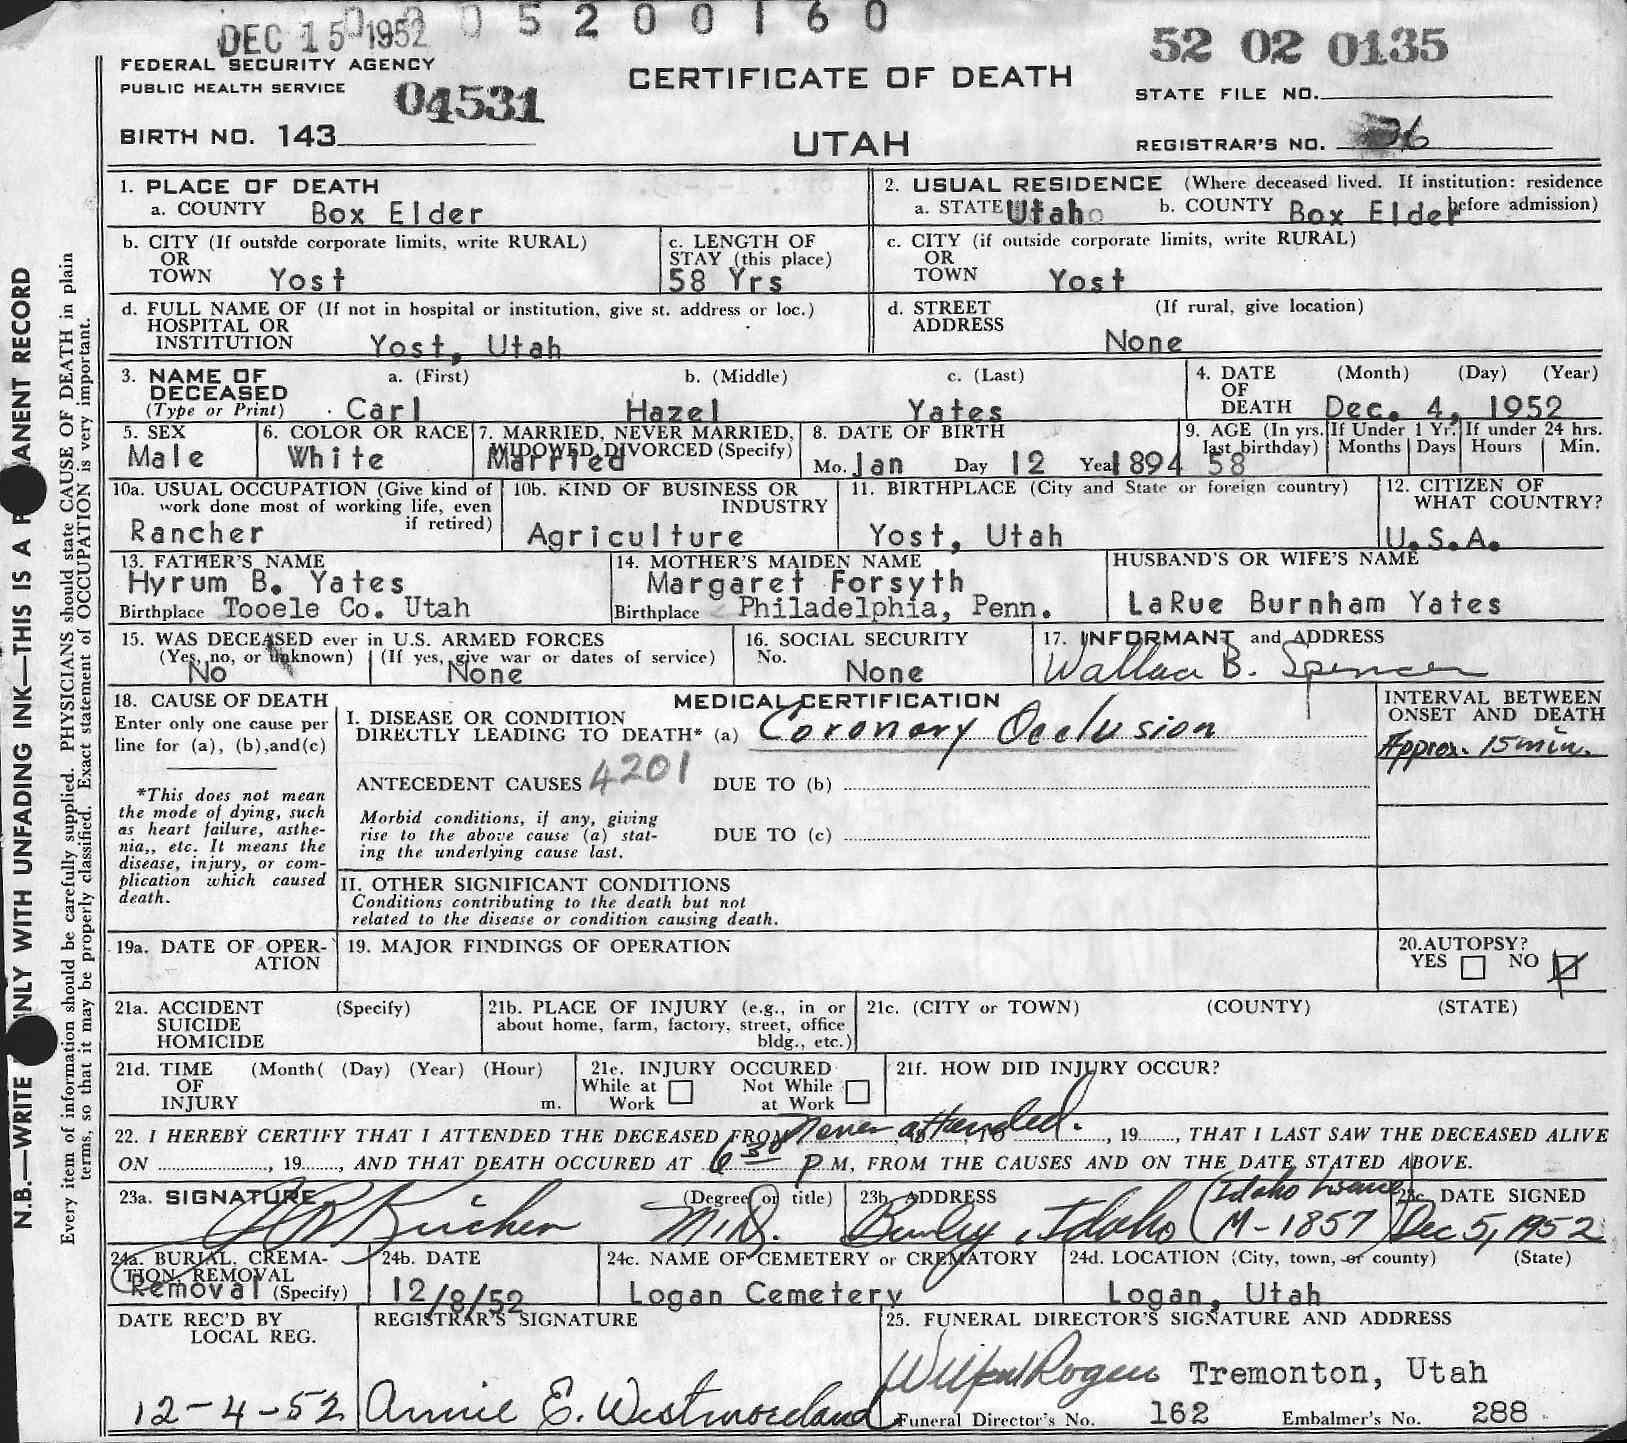 DEC 15 1952 0 2 0 5 2 0 0 1 6 0
52 02 0135
FEDERAL SECURITY AGENCY
PUBLIC HEALTH SERVICE
04531
CERTIFICATE OF DEATH
STATE FILE NO.
BIRTH NO. 143
UTAH
REGISTRAR'S NO. 36
1. PLACE OF DEATH
a. COUNTY Box Elder
2. USUAL RESIDENCE (Where deceased lived. If institution: residence before admission)
a. STATE Utah b. COUNTY Box Elder
b. CITY (If outside corporate limits, write RURAL)
OR
TOWN Yost
c. LENGTH OF
STAY (this place)
58 Yrs
c. CITY (if outside corporate limits, write RURAL)
OR
TOWN Yost
d. FULL NAME OF (If not in hospital or institution, give st. address or loc.)
HOSPITAL OR
INSTITUTION Yost, Utah
d. STREET (If rural, give location)
ADDRESS
None
3. NAME OF DECEASED
(Type or Print)
a. (First) b. (Middle) c. (Last)
Carl Hazel Yates
4. DATE OF DEATH
(Month) (Day) (Year)
Dec. 4, 1952
5. SEX
Male
6. COLOR OR RACE
White
7. MARRIED, NEVER MARRIED,
WIDOWED, DIVORCED (Specify)
Married
8. DATE OF BIRTH
Mo. Jan Day 12 Year 1894
9. AGE (In yrs.
last birthday)
58
If Under 1 Yr.
Months Days
If under 24 hrs.
Hours Min.
10a. USUAL OCCUPATION (Give kind of
work done most of working life, even
if retired)
Rancher
10b. KIND OF BUSINESS OR
INDUSTRY
Agriculture
11. BIRTHPLACE (City and State or foreign country)
Yost, Utah
12. CITIZEN OF
WHAT COUNTRY?
U.S.A.
13. FATHER'S NAME
Hyrum B. Yates
Birthplace Tooele Co. Utah
14. MOTHER'S MAIDEN NAME
Margaret Forsyth
Birthplace Philadelphia, Penn.
HUSBAND'S OR WIFE'S NAME
LaRue Burnham Yates
15. WAS DECEASED ever in U.S. ARMED FORCES
(Yes, no, or unknown) (If yes, give war or dates of service)
No None
16. SOCIAL SECURITY
No.
None
17. INFORMANT and ADDRESS
Wallace B. Spencer
18. CAUSE OF DEATH
Enter only one cause per
line for (a), (b),and(c)
*This does not mean
the mode of dying, such
as heart failure, asthe-
nia,, etc. It means the
disease, injury, or com-
plication which caused
death.
MEDICAL CERTIFICATION
I. DISEASE OR CONDITION
DIRECTLY LEADING TO DEATH* (a) Coronary Occlusion
INTERVAL BETWEEN
ONSET AND DEATH
Approx. 15 min.
ANTECEDENT CAUSES 4201 DUE TO (b)
Morbid conditions, if any, giving
rise to the above cause (a) stat-
ing the underlying cause last.
DUE TO (c)
II. OTHER SIGNIFICANT CONDITIONS
Conditions contributing to the death but not
related to the disease or condition causing death.
19a. DATE OF OPER-
ATION
19. MAJOR FINDINGS OF OPERATION
20. AUTOPSY?
YES NO
21a. ACCIDENT (Specify)
SUICIDE
HOMICIDE
21b. PLACE OF INJURY (e.g., in or
about home, farm, factory, street, office
bldg., etc.)
21c. (CITY or TOWN) (COUNTY) (STATE)
21d. TIME (Month( (Day) (Year) (Hour)
OF
INJURY m.
21e. INJURY OCCURED
While at Work Not While at Work
21f. HOW DID INJURY OCCUR?
22. I HEREBY CERTIFY THAT I ATTENDED THE DECEASED FROM Never attended. , 19 , THAT I LAST SAW THE DECEASED ALIVE
ON , 19 , AND THAT DEATH OCCURED AT 6 30 P M, FROM THE CAUSES AND ON THE DATE STATED ABOVE.
23a. SIGNATURE (Degree or title)
M.D.
23b. ADDRESS
Burley, Idaho (Idaho License M-1857)
23c. DATE SIGNED
Dec 5, 1952
24a. BURIAL, CREMA-
TION, REMOVAL
Removal (Specify)
24b. DATE
12/8/52
24c. NAME OF CEMETERY or CREMATORY
Logan Cemetery
24d. LOCATION (City, town, or county) (State)
Logan, Utah
DATE REC'D BY
LOCAL REG.
12-4-52
REGISTRAR'S SIGNATURE
Annie E. Westmoreland
25. FUNERAL DIRECTOR'S SIGNATURE AND ADDRESS
Rogers Tremonton, Utah
Funeral Director's No. 162 Embalmer's No. 288
N.B.—WRITE ONLY WITH UNFADING INK—THIS IS A PERMANENT RECORD
Every item of information should be carefully supplied. PHYSICIANS should state CAUSE OF DEATH in plain
terms, so that it may be properly classified. Exact statement of OCCUPATION is very important.